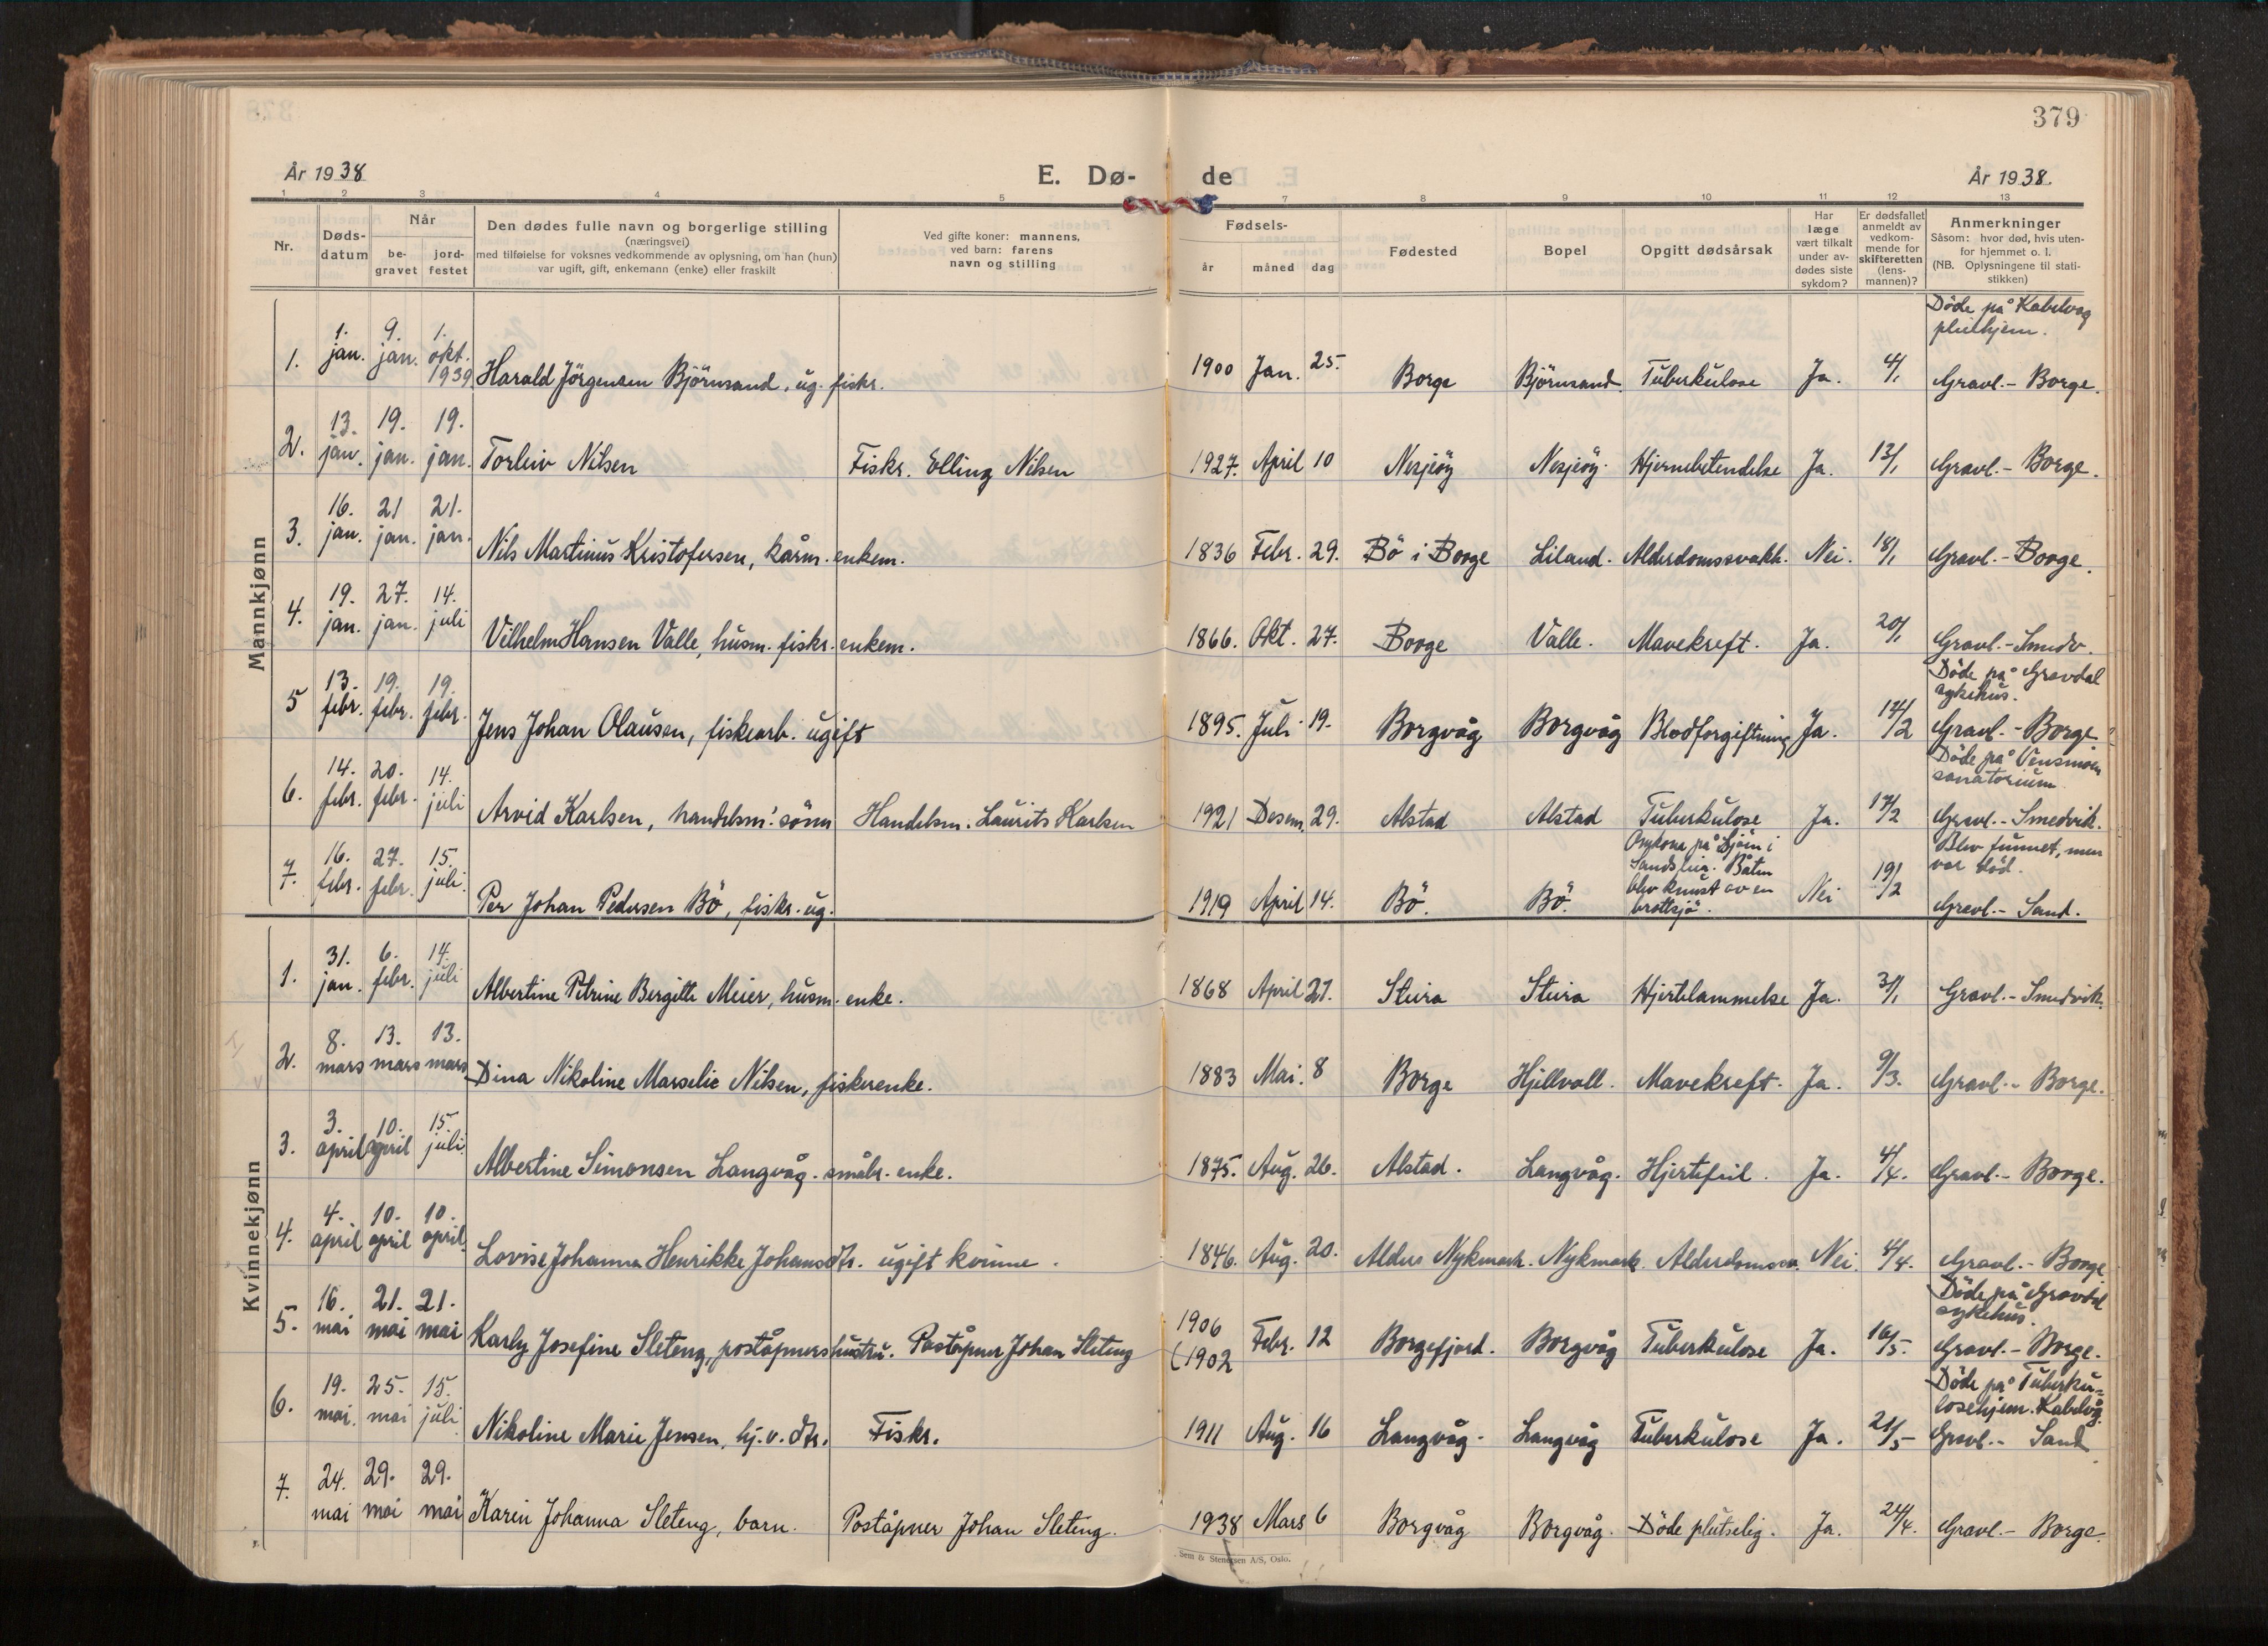 379
År 1938
E. Dø-
de
År 1938.
1 2 3 4 5 7 8 9 10 11 12 13
Nr.
Døds-
datum
Når
be-
gravet
jord-
festet
Den dødes fulle navn og borgerlige stilling
(næringsvei)
med tilføielse for voksnes vedkommende av oplysning, om han (hun)
var ugift, gift, enkemann (enke) eller fraskilt
Ved gifte koner: mannens,
ved barn: farens
navn og stilling
Fødsels-
år måned dag
Fødested
Bopel
Opgitt dødsårsak
Har
læge
vært tilkalt
under av-
dødes siste
sykdom?
Er dødsfallet
anmeldt av
vedkom-
mende for
skifteretten
(lens-
mannen)?
Anmerkninger
Såsom: hvor død, hvis uten-
for hjemmet o. l.
(NB. Oplysningene til stati-
stikken)
Mannkjønn
Døde på Kabelvåg
pleiehjem.
1. 1. jan. 9. jan. 1. okt. 1939 Harald Jörgensen Björnsand, ug. fiskr. 1900 Jan. 25. Borge Björnsand Tuberkulose Ja. 4/1 Gravl. - Borge.
2. 13. jan. 19. jan. 19. jan. Torleiv Nilsen Fiskr. Elling Nilsen 1927. April 10 Nesjeöy Nesjeöy. Hjernebetendelse Ja. 13/1 Gravl. - Borge.
3. 16. jan. 21 jan. 21. jan. Nils Martinus Kristofersen, kårm. enkem. 1836 Febr. 29. Bö i Borge Liland. Alderdomssvakh. Nei. 18/1 Gravl. - Borge.
4. 19. jan. 27. jan. 14. juli Vilhelm Hansen Valle, husm. fiskr. enkem. 1866. Okt. 27. Borge Valle. Mavekreft. Ja. 20/1 Gravl. - Smedv.
Döde på Gravdal
sykehus.
5 13. febr. 19. febr. 19. febr. Jens Johan Olausen, fiskearb. ugift 1895. Juli 19. Borgvåg Borgvåg Blodforgiftning Ja. 17/2 Gravl. - Borge
Döde på Vensmoen
sanatorium
6. 14. febr. 20. febr. 14. juli Arvid Karlsen, handelsm. sönn Handelsm. Laurits Karlsen 1921 Desem. 29. Alstad Alstad Tuberkulose Ja. 17/2 Gravl. - Smedvik.
Omkom på sjöen i
Båten
blev knust av en
brottsjö.
Blev funnet, men
var död.
7. 16. febr. 27. febr. 15. juli. Per Johan Pedersen Bö, fiskr. ug. 1919 April 14. Bö. Bö. Nei 19/2 Gravl. - Sand.
Kvinnekjønn
1. 31. jan. 6. febr. 14. juli Albertine Petrine Bergitte Meier, husm. enke. 1868 April 27. Steira Steira Hjertelammelse Ja. 31/1 Gravl. - Smedvik.
2. 8. mars 13. mars 13. mars Dina Nikoline Marselie Nilsen, fiskerenke. 1883 Mai. 8 Borge Hjellvoll. Mavekreft. Ja. 9/3. Gravl. - Borge.
3. 3. april 10. april 15. juli Albertine Simonsen Langvåg. småbr. enke. 1875. Aug. 26. Alstad. Langvåg. Hjertefeil. Ja. 4/4. Gravl. - Borge.
4. 4. april 10. april 10. april. Lovise Johanna Henrikke Johansdtr. ugift kvinne. 1846. Aug. 20. Nykmark. Nykmark. Alderdomssv. Nei. 4/4. Gravl. - Borge
Döde på Gravdal
sykehus.
5. 16. mai 21. mai 21. mai Karly Josefine Sleteng, poståpnershustru. Poståpner Johan Sleteng 1906 (1902 Febr. 12 Borgefjord. Borgvåg Tuberkulose Ja. 16/5- Gravl. - Borge.
Döde på Tuberku-
losehjem. Kabelvåg
6. 19. mai. 25. mai 15. juli Nikoline Marie Jensen, hj.v. dtr. Fiskr. 1911 Aug. 16 Langvåg. Langvåg Tuberkulose Ja. 21/5- Gravl. - Sand
7. 24. mai 29. mai 29. mai Karin Johanna Sleteng, barn. Poståpner Johan Sleteng. 1938 Mars 6 Borgvåg Borgvåg. Döde plutselig. Ja. 24/4. Gravl. - Borge.
Sem & Stenersen A/S, Oslo.